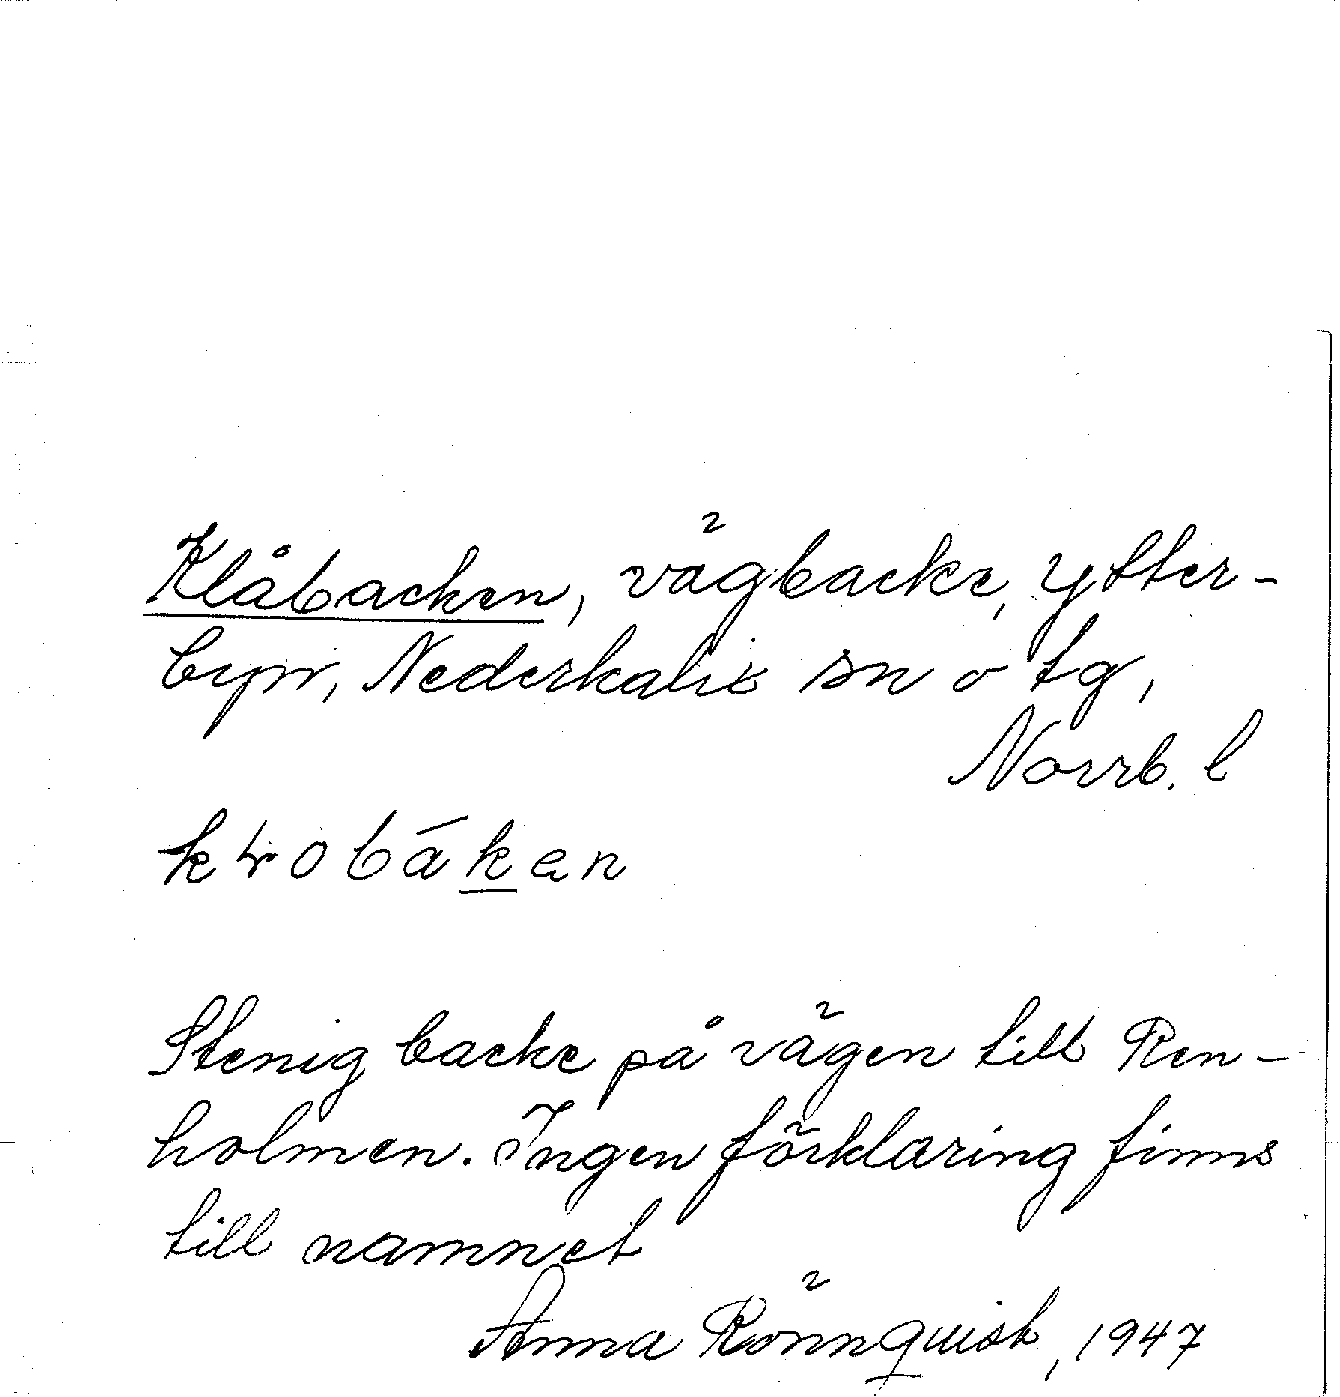 Klåbacken, vägbacke, Ytter-
byn, Nederkalix sn o tg,
Norrb. l
Stenig backe på vägen till Ren-
holmen. Ingen förklaring finns
till namnet
Anna Rönnquist, 1947